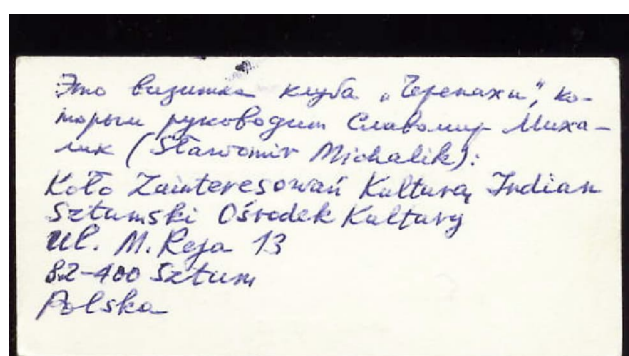 Это визитка клуба „Черепахи“, ко-
торым руководит Славомир Миха-
лик (Sławomir Michalik):
Koło Zainteresowań Kulturą Indian
Sztumski Ośrodek Kultury
Ul. M. Reja 13
82-400 Sztum
Polska